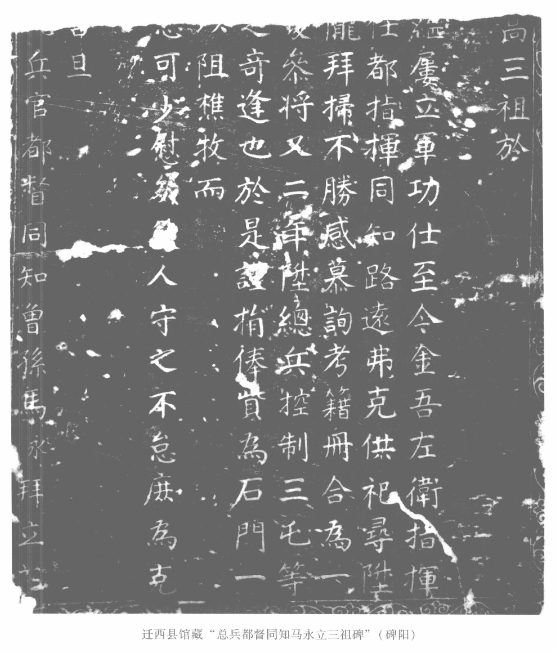 尚三祖於
屢立軍功仕至今金吾左衛指揮
仕都指揮同知路遠弗克供祀尋陞
隴拜掃不勝感慕詢考籍冊合為一
參將又二年陞總兵控制三屯等
之奇逢也於是謹捐俸貲為石門一
以阻樵牧而
可少慰 人守之不怠庶為克
吉旦
兵官都督同知曾孫馬永拜立石
迁西县馆藏“总兵都督同知马永立三祖碑”（碑阳）